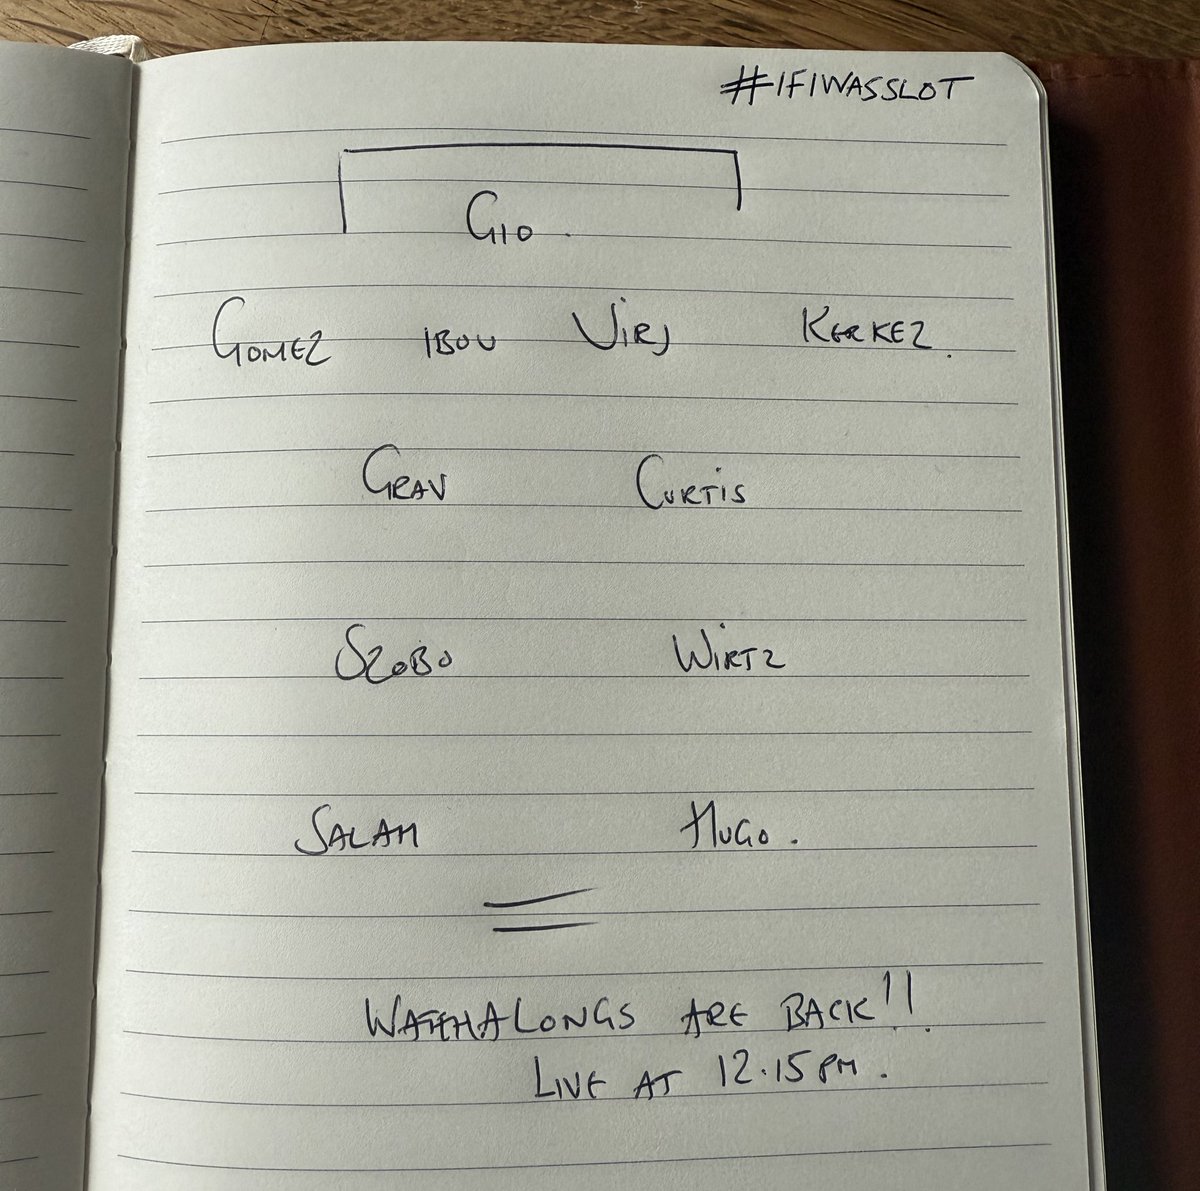 #IFIWASSLOT
GIO.
GOMEZ IBOU VIRJ KERKEZ.
GRAV CURTIS
SZOBO WIRTZ
SALAH HUGO.
WATCHALONGS ARE BACK!!
LIVE AT 12.15PM.